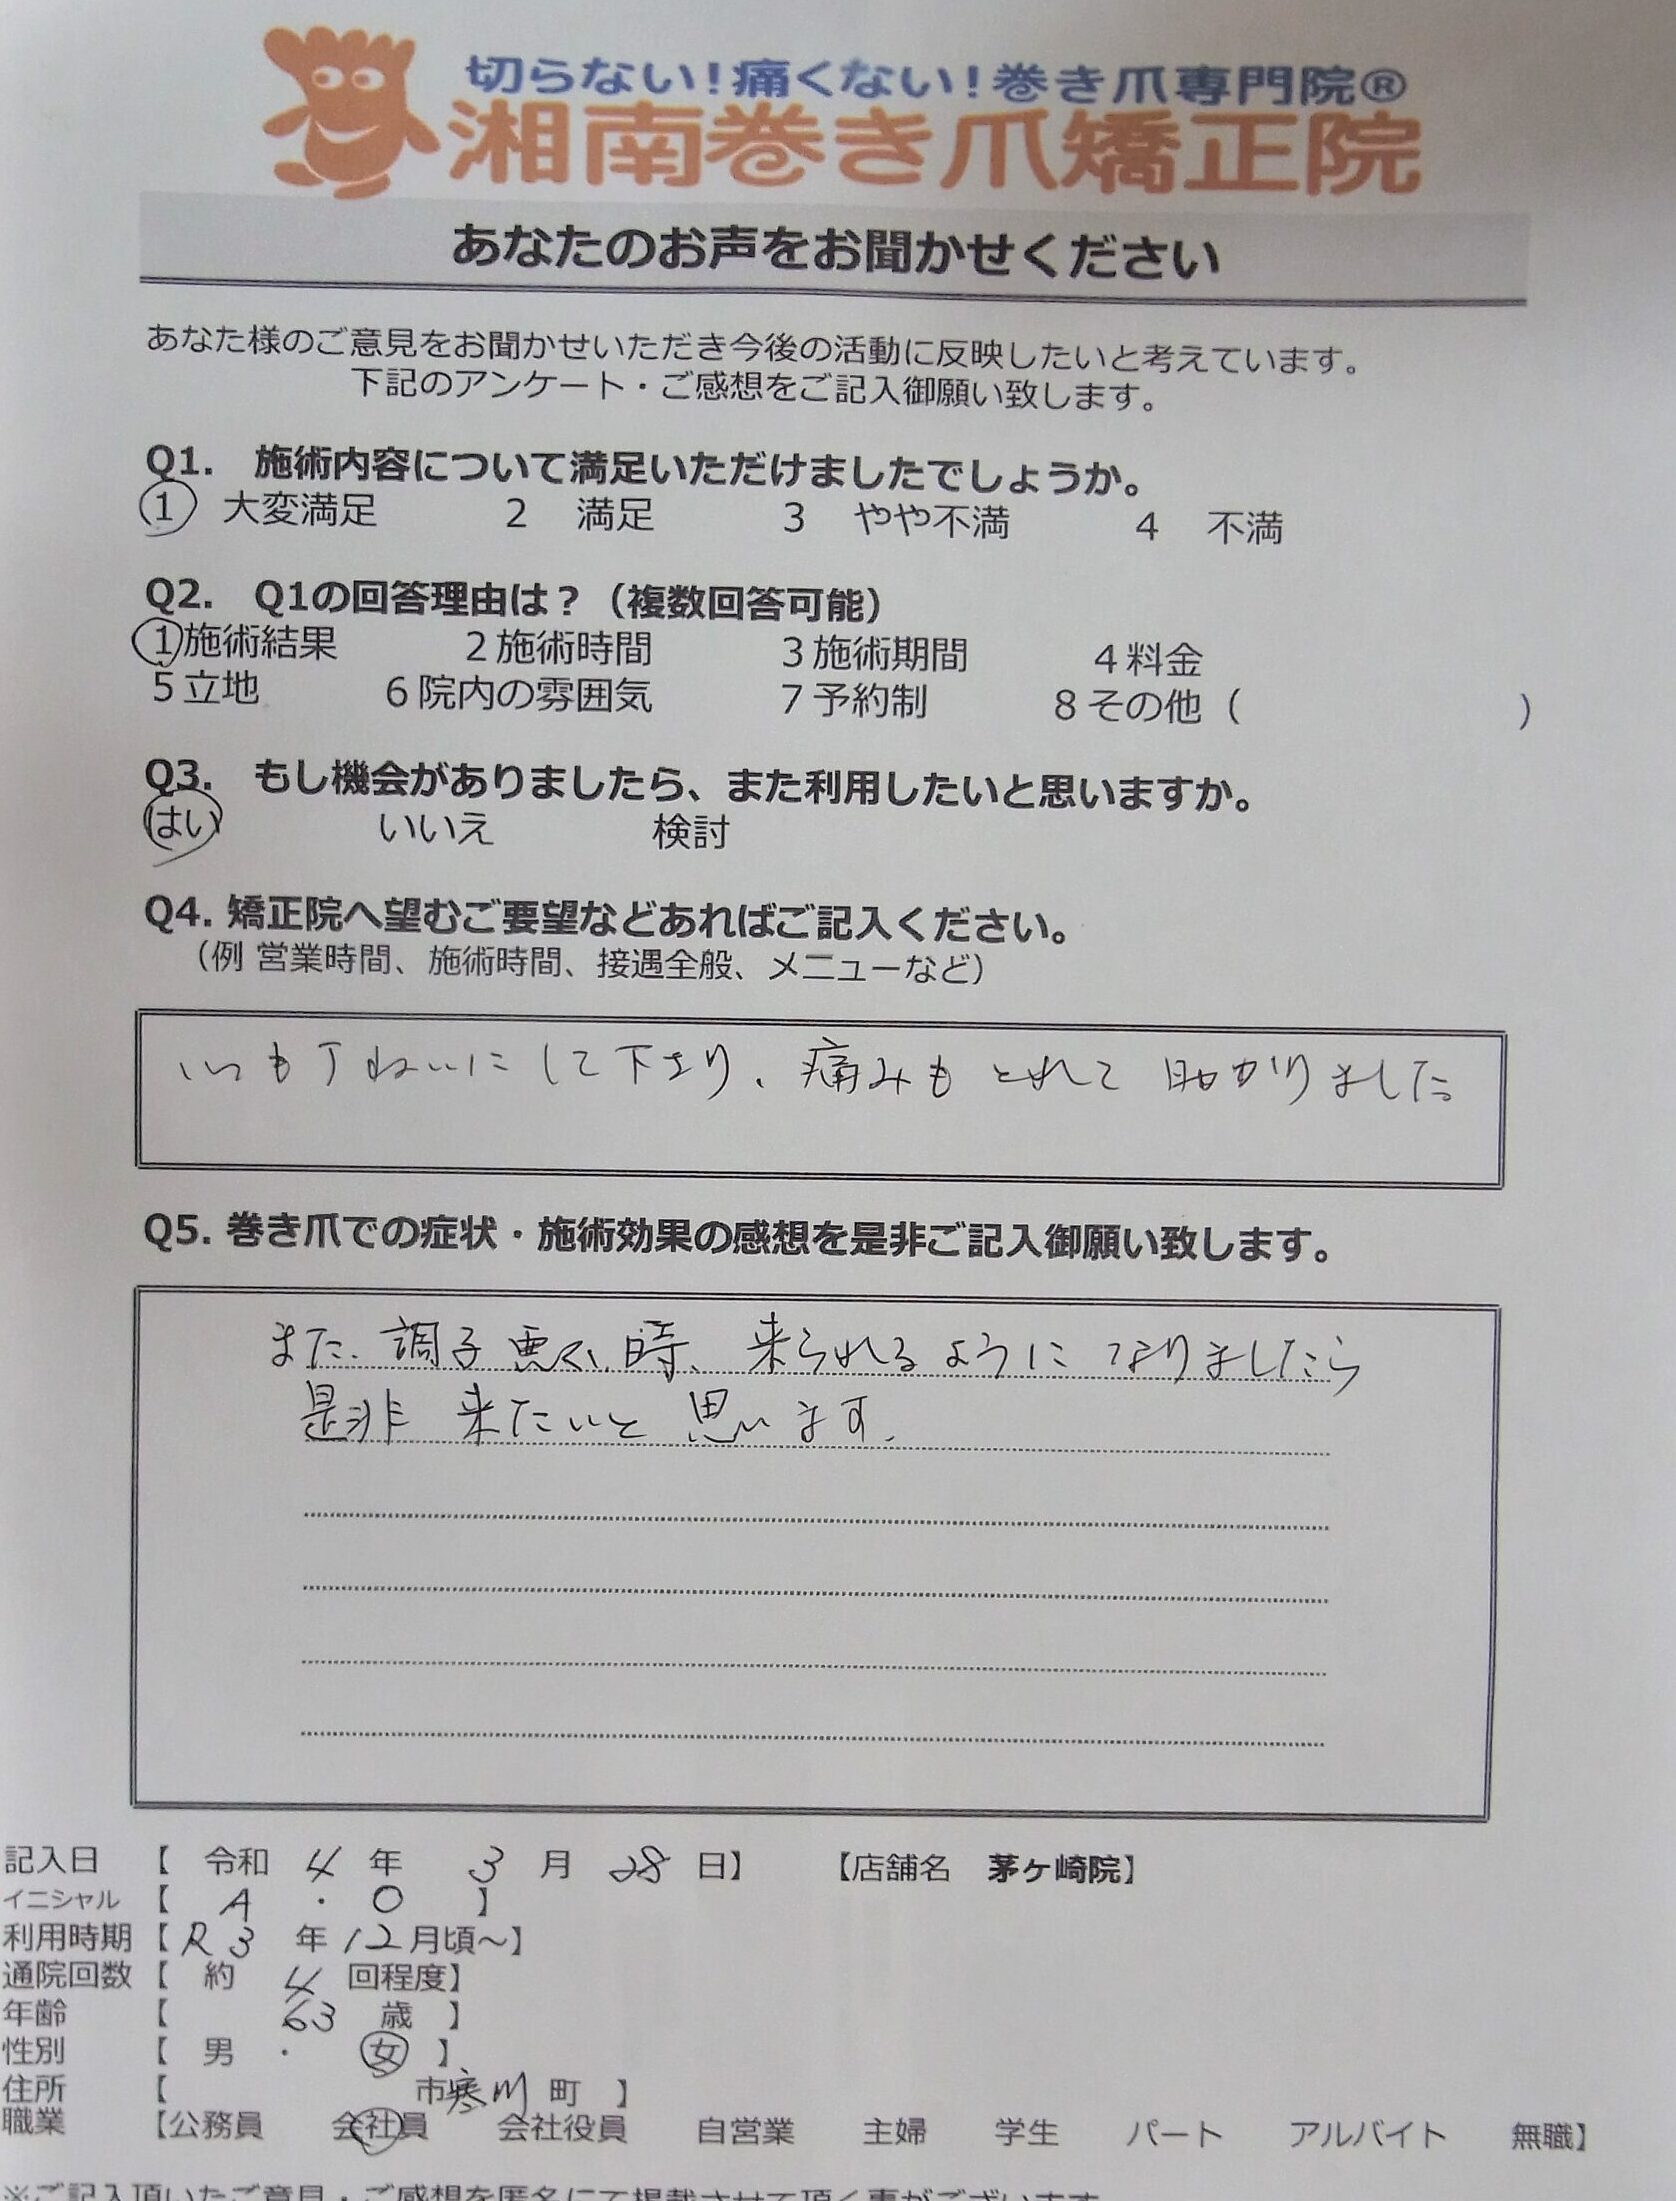 切らない！痛くない！巻き爪専門院®
湘南巻き爪矯正院
あなたのお声をお聞かせください
あなた様のご意見をお聞かせいただき今後の活動に反映したいと考えています。
下記のアンケート・ご感想をご記入御願い致します。
Q1. 施術内容について満足いただけましたでしょうか。
1 大変満足 2 満足 3 やや不満 4 不満
Q2. Q1の回答理由は？（複数回答可能）
1施術結果 2施術時間 3施術期間 4料金
5立地 6院内の雰囲気 7予約制 8その他（ ）
Q3. もし機会がありましたら、また利用したいと思いますか。
はい いいえ 検討
Q4. 矯正院へ望むご要望などあればご記入ください。
（例 営業時間、施術時間、接遇全般、メニューなど）
いつも丁ねいにして下さり、痛みもとれて助かりました。
Q5. 巻き爪での症状・施術効果の感想を是非ご記入御願い致します。
また、調子悪い時、来られるようになりましたら
是非 来たいと思います。
記入日 【 令和 4 年 3 月 28 日】 【店舗名 茅ヶ崎院】
イニシャル 【 A ・ O 】
利用時期 【 R3 年 12 月頃～】
通院回数 【 約 4 回程度】
年齢 【 63 歳 】
性別 【 男 ・ 女 】
住所 【 市 寒川 町 】
職業 【公務員 会社員 会社役員 自営業 主婦 学生 パート アルバイト 無職】
※ご記入頂いたご意見・ご感想を匿名にて掲載させて頂く事がございます